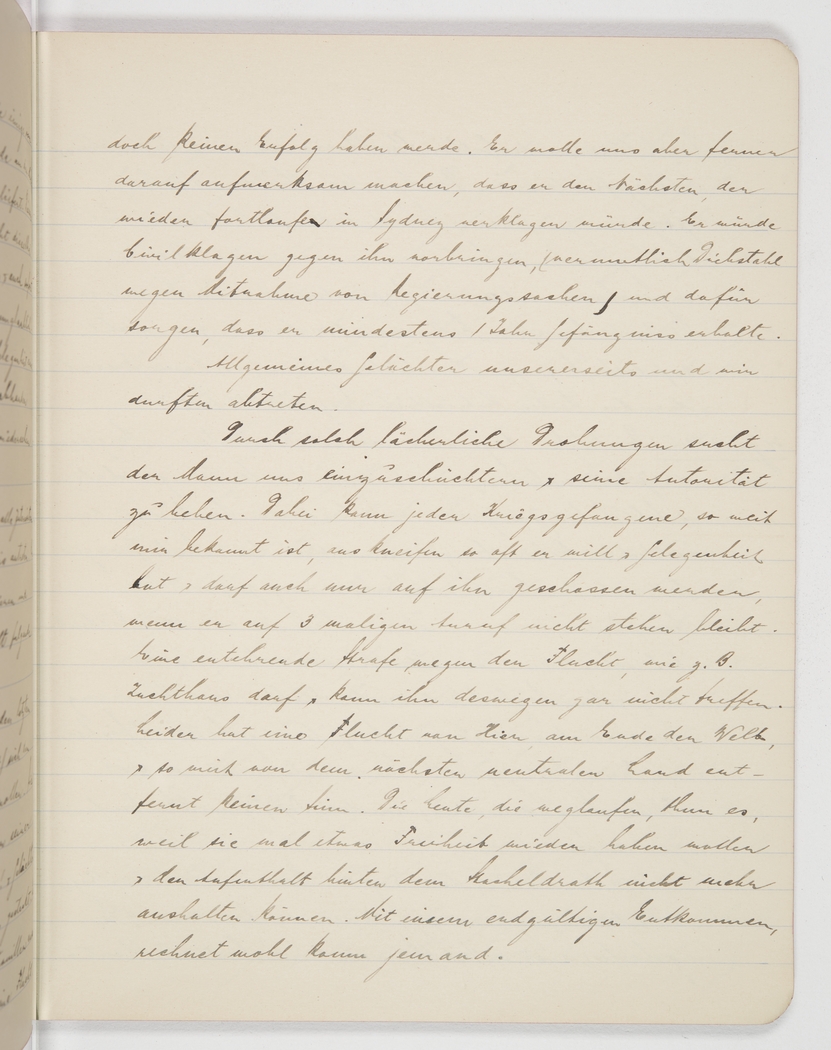 doch keinen Erfolg haben werde. Er wolle uns aber ferner
darauf aufmerksam machen, dass er den Nächsten, der
wieder fortlaufe in Sydney verklagen würde. Er würde
Civilklagen gegen ihn vorbringen, (vermuthlich Diebstahl
wegen Mitnahme von Regierungssachen) und dafür
sorgen, dass er mindestens 1 Jahr Gefängniss erhalte.
Allgemeines Gelächter unsererseits und wir
durften abtreten.
Durch solch lächerliche Drohungen sucht
der Mann uns einzuschüchtern & seine Autorität
zu heben. Dabei kann jeder Kriegsgefangene, so weit
mir bekannt ist, auskneifen so oft er will & Gelegenheit
hat & darf auch nur auf ihn geschossen werden,
wenn er auf 3 maligen Anruf nicht stehen bleibt.
Eine entehrende Strafe wegen der Flucht, wie z. B.
Zuchthaus darf & kann ihn deswegen gar nicht treffen.
Leider hat eine Flucht von Hier, am Ende der Welt,
& so weit von dem nächsten neutralen Land ent-
fernt keinen Sinn. Die Leute, die weglaufen, thun es,
weil sie mal etwas Freiheit wieder haben wollen
& den Aufenthalt hinter dem Stacheldrath nicht mehr
aushalten können. Mit einem endgültigen Entkommen,
rechnet wohl kaum jemand.